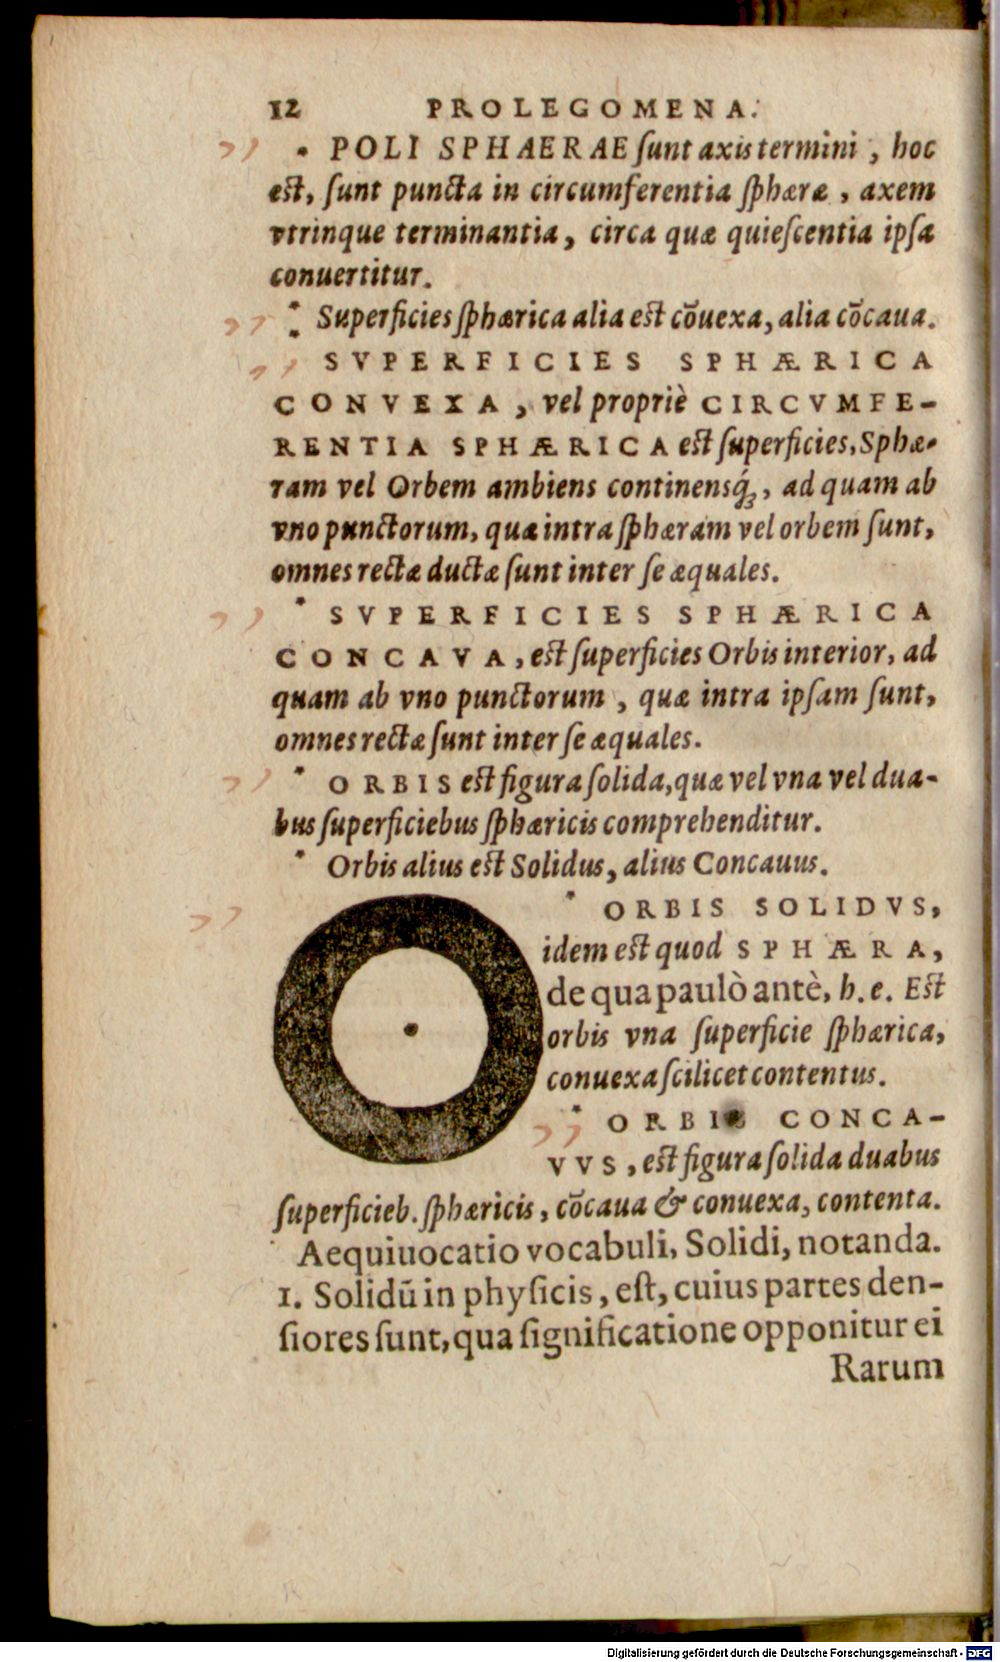 12 PROLEGOMENA.
* POLI SPHAERAE ſunt axis termini, hoc
eſt, ſunt puncta in circumferentia ſphæræ, axem
vtrinque terminantia, circa quæ quieſcentia ipſa
conuertitur.
* Superficies ſphærica alia eſt cõuexa, alia cõcaua.
SVPERFICIES SPHÆRICA
CONVEXA, vel propriè CIRCVMFE-
RENTIA SPHÆRICA est ſuperficies, Sphæ-
ram vel Orbem ambiens continensq́;, ad quam ab
vno punctorum, quæ intra ſphæram vel orbem ſunt,
omnes rectæ ductæ ſunt inter ſe æquales.
* SVPERFICIES SPHÆRICA
CONCAVA, est ſuperficies Orbis interior, ad
quam ab vno punctorum, quæ intra ipſam ſunt,
omnes rectæ ſunt inter ſe æquales.
* ORBIS est figura ſolida, quæ vel vna vel dua-
bus ſuperficiebus ſphæricis comprehenditur.
* Orbis alius est Solidus, alius Concauus.
* ORBIS SOLIDVS,
idem est quod SPHÆRA,
de qua paulò antè, h.e. Est
orbis vna ſuperficie ſphærica,
conuexa ſcilicet contentus.
* ORBIS CONCA-
VVS, est figura ſolida duabus
ſuperficieb. ſphæricis, cõcaua & conuexa, contenta.
Aequiuocatio vocabuli, Solidi, notanda.
1. Solidũ in phyſicis, eſt, cuius partes den-
ſiores ſunt, qua ſignificatione opponitur ei
Rarum
Digitalisierung gefördert durch die Deutsche Forschungsgemeinschaft - DFG